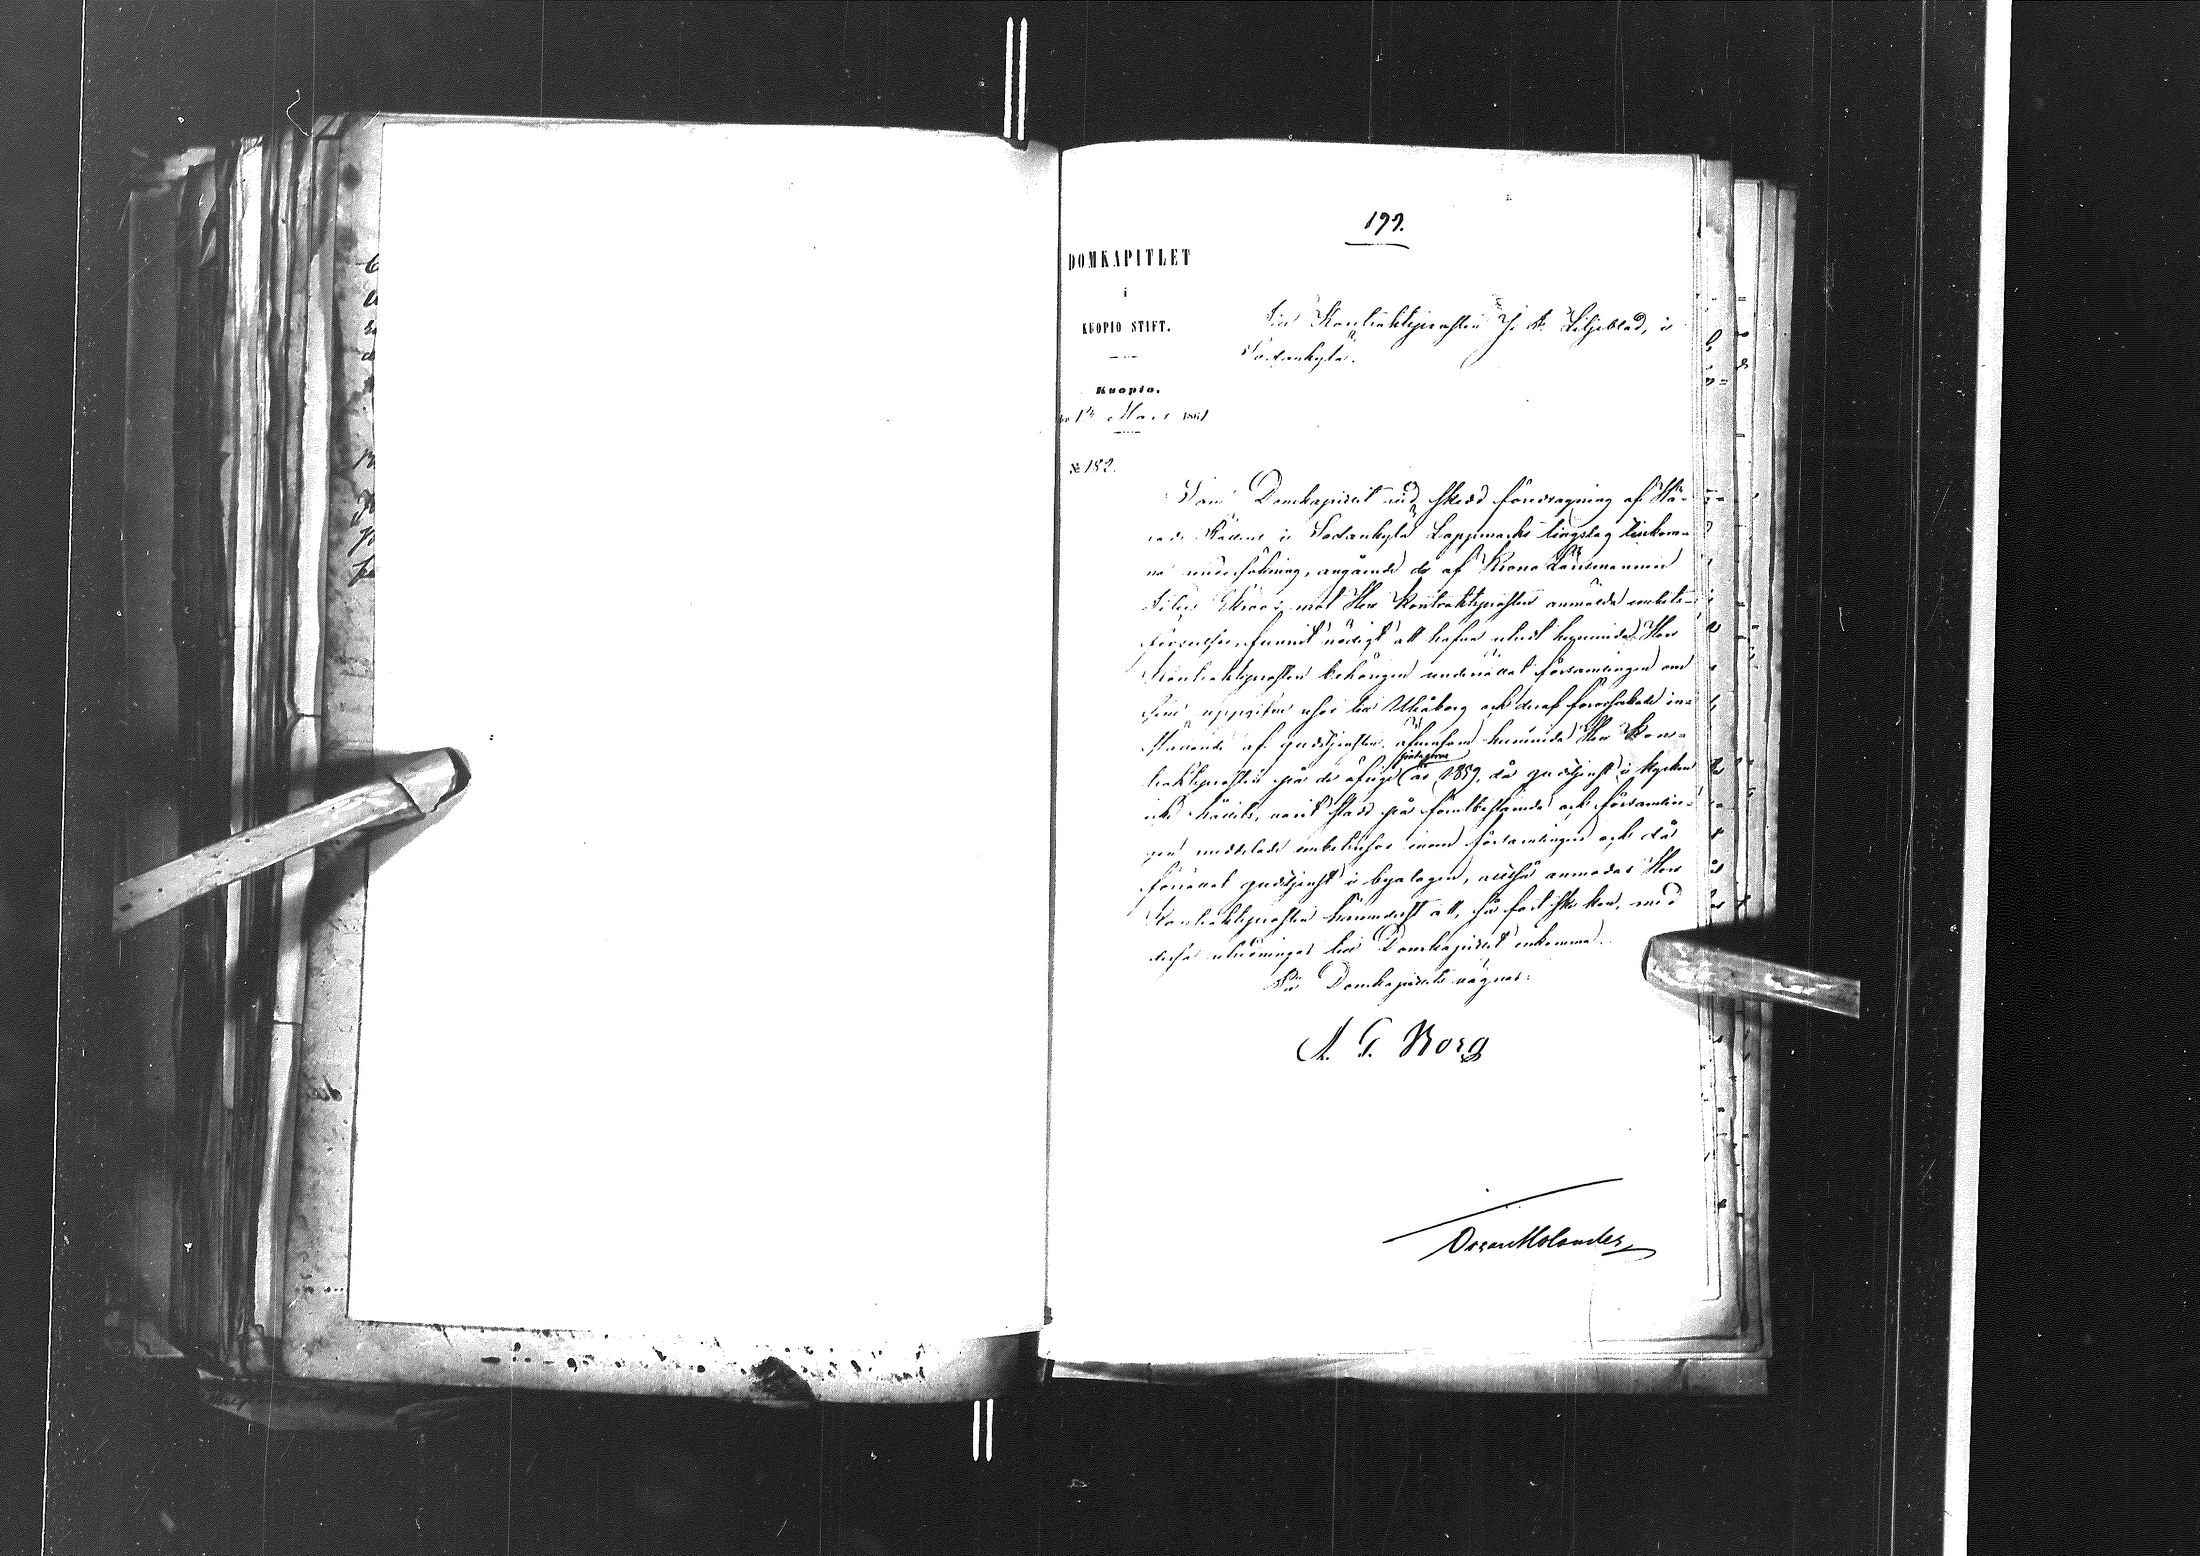 197.
DOMKAPITLET
i
KUOPIO STIFT.
Kuopio,
den 14 Mars 1861
№ 182.
Till Kontraktsprosten J. A. Liljeblad, i
Sodankylä.
Som Domkapitlet vid skedd föredragning af Hä-
rads Rättens i Sodankylä Lappmarks tingslag
undersökning, angående de af Krono Länsmannen
mot Herr Kontraktsprosten anmälda embets-
funnit nödigt att hafva utredt huruvida Herr
Kontraktsprosten behörigen underrättat församlingen om
sin resor till Uleåborg och deraf förorsakade in-
ställande af gudstjensten, äfvensom huruvida Herr Kon-
traktsprosten på de öfrige
söndagarne
år 1859, då gudstjenst i kyrkan
icke hållits, varit stadd på förutbestämda och församlin-
gen meddelade embetsresor inom församlingen och då
förrättat gudstjenst i byalagen, alltså anmodas Herr
Kontraktsprosten härmedelst att, så fort ske kan, med
dessa till Domkapitlet inkomma.
På Domkapitlets vägnar:
A. G. Borg
Oscar Molander